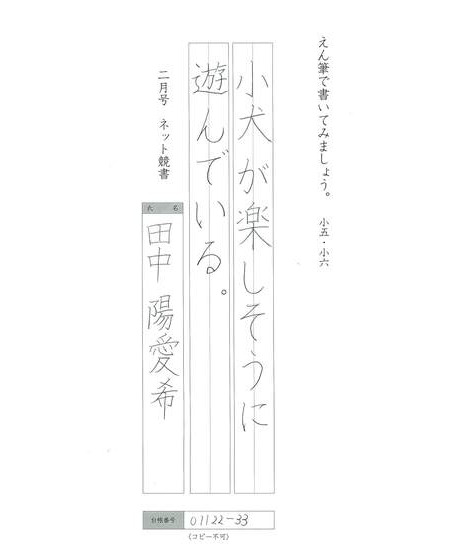 えん筆で書いてみましょう。 小五・小六
小犬が楽しそうに
遊んでいる。
二月号 ネット競書
氏名
田中 陽愛希
台帳番号 01122-33
(コピー不可)